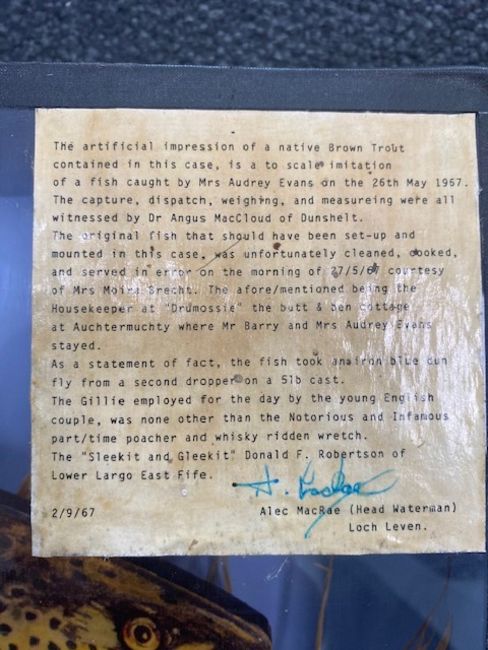 The artificial impression of a native Brown Trout
contained in this case, is a to scale imitation
of a fish caught by Mrs Audrey Evans on the 26th May 1967.
The capture, dispatch, weighing, and measureing were all
witnessed by Dr Angus MacCloud of Dunshelt.
The original fish that should have been set-up and
mounted in this case, was unfortunately cleaned, cooked,
and served in error on the morning of 27/5/67 courtesy
of Mrs Moira Brecht. The afore/mentioned being the
Housekeeper at "Drumossie" the butt & ben cottage
at Auchtermuchty where Mr Barry and Mrs Audrey Evans
stayed.
As a statement of fact, the fish took an iron blue dun
fly from a second dropper on a 5lb cast.
The Gillie employed for the day by the young English
couple, was none other than the Notorious and Infamous
part/time poacher and whisky ridden wretch.
The "Sleekit and Gleekit" Donald F. Robertson of
Lower Largo East Fife.
2/9/67 Alec MacRae (Head Waterman)
Loch Leven.